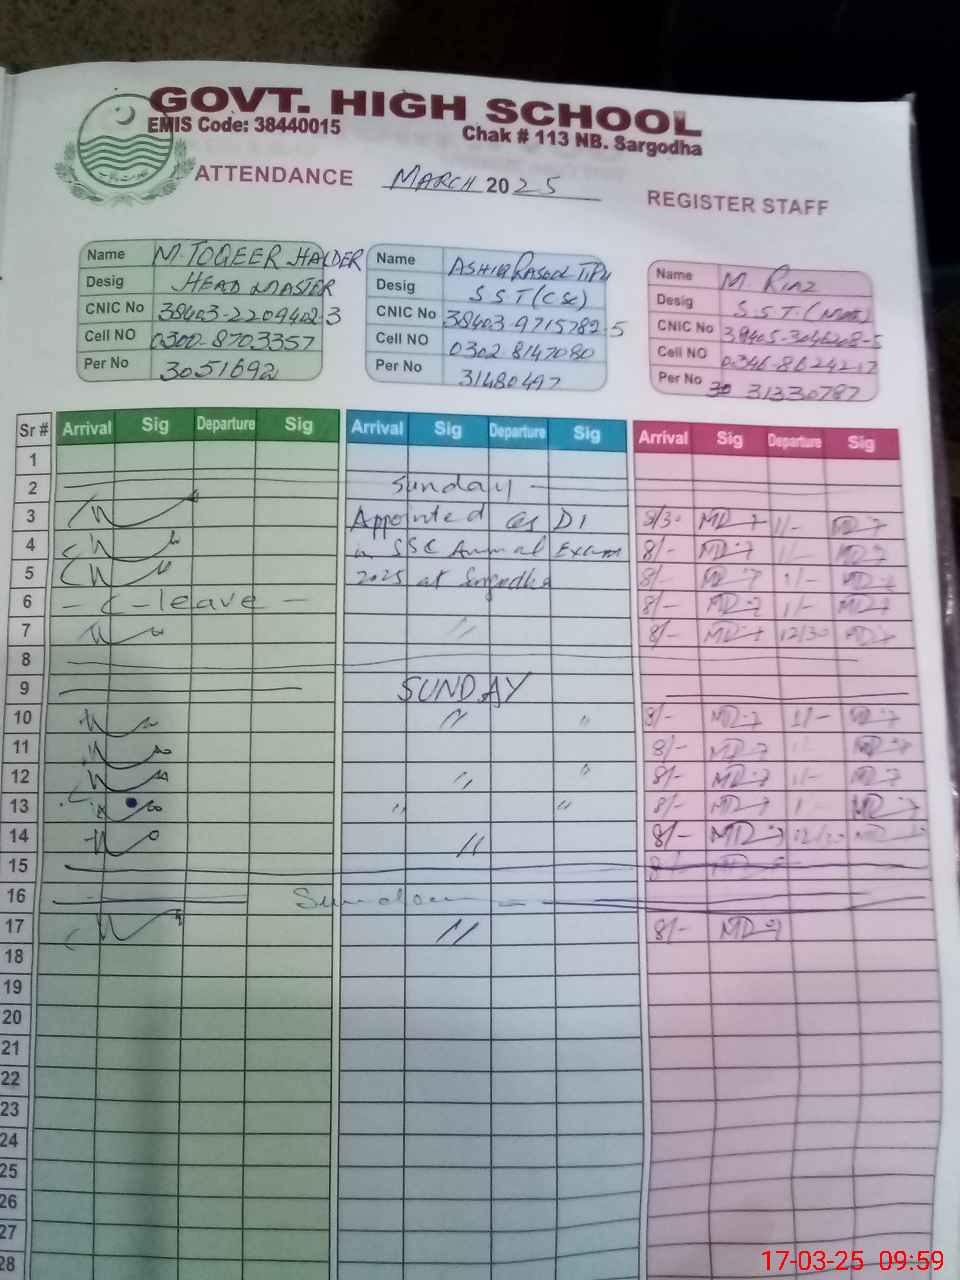 GOVT. HIGH SCHOOL
EMIS Code: 38440015
Chak # 113 NB. Sargodha
ATTENDANCE MARCH 2025
REGISTER STAFF
Name M. TOQEER HAIDER
Desig HEAD MASTER
CNIC No 38403-2209402-3
Cell NO 0300-8703357
Per No 3051692
Name
Desig SST (CSc)
CNIC No 38403-9715782-5
Cell NO 0302 8147080
Per No 31480497
Name M. Riaz
Desig S.S.T
CNIC No
Cell NO
Per No 31330787
Sr # Arrival Sig Departure Sig Arrival Sig Departure Sig Arrival Sig Departure Sig
1
2 Sunday
3 Appointed as DI 8/30 1/-
4 in SSC Annual Exam 8/- 1/-
5 2025 at Sargodha 8/- 1/-
6 - C - leave - 8/- 1/-
7 〃 8/- 12/30
8
9 SUNDAY
10 〃 〃 8/- 1/-
11 8/-
12 〃 〃 8/- 1/-
13 〃 〃 8/-
14 〃 8/- 12/30
15 8/-
16 Sunday
17 〃 8/-
18
19
20
21
22
23
24
25
26
27
28
17-03-25 09:59